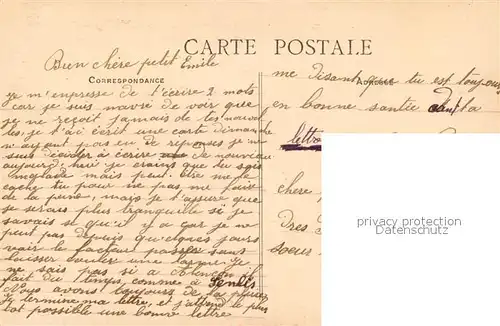 CARTE POSTALE
Bien chère petit Emile
CORRESPONDANCE
je m'enpresse de t'écrire 2 mots
car je suis navré de voir que
je ne reçoit jamais de tes nouvel
les, je t'ai écrit une carte dimanche
n'ayant pas eu de reponses je me
suis décider à écrire de nouveau
aujourd'hui je crains que tu sois
malade mais peut être me le
cache tu pour ne pas me faire
de la peine, mais je t'assure que
je serais plus tranquille si je
savais se qu'il y a car je ne
peut pas depuis quelques jours
voir le facteur passer sans
laisser couler une larme. Je
ne sais pas si a Alençon il
fait du temps comme à Senlis
Nous avons toujours de la pluie
Je termine ma lettre, et j'attend le plus
tot possible une bonne lettre
me disant que tu est toujours
en bonne santée dans ta
lettre
chère
Dres
soeur
privacy protection